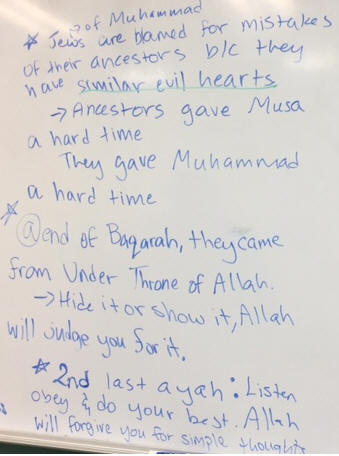 → of Muhammad
* Jews are blamed for mistakes
of their ancestors b/c they
have similar evil hearts
→ Ancestors gave Musa
a hard time
They gave Muhammad
a hard time
*
@end of Baqarah, they came
from Under Throne of Allah.
→ Hide it or show it, Allah
will judge you for it.
* 2nd last ayah: Listen
obey & do your best. Allah
will forgive you for simple thoughts